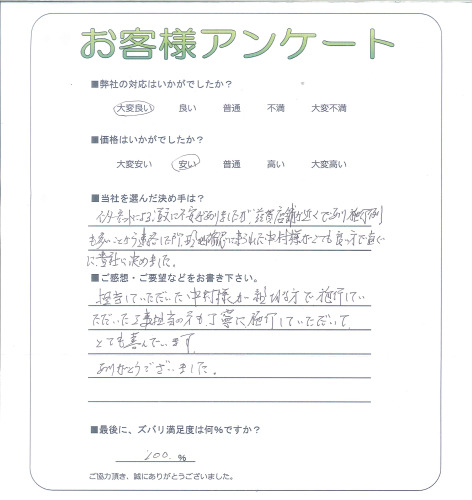 お客様アンケート
■弊社の対応はいかがでしたか？
大変良い 良い 普通 不満 大変不満
■価格はいかがでしたか？
大変安い 安い 普通 高い 大変高い
■当社を選んだ決め手は？
インターネットによる に不安がありましたが、滋賀店舗が近くであり施行例
も多いことから 来られた中村様がとても良い方で直ぐ
に貴社に決めました。
■ご感想・ご要望などをお書き下さい。
担当していただいた中村様が親切な方で施行してい
ただいた工事担当の方も丁寧に施行していただいて
とても喜んでいます
ありがとうございました。
■最後に、ズバリ満足度は何%ですか？
100. %
ご協力頂き、誠にありがとうございました。